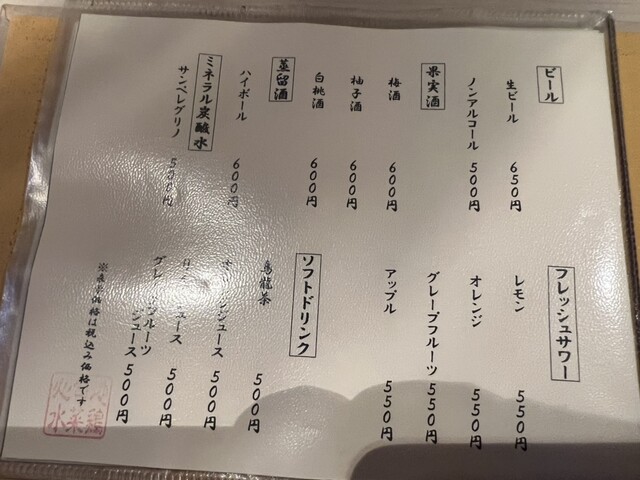 ビール
生ビール 650円
ノンアルコール 500円
果実酒
梅酒 600円
柚子酒 600円
白桃酒 600円
蒸留酒
ハイボール 600円
ミネラル炭酸水
サンペレグリノ 500円
フレッシュサワー
レモン 550円
オレンジ 550円
グレープフルーツ 550円
アップル 550円
ソフトドリンク
烏龍茶 500円
ジュース 500円
ジュース 500円
グレープフルーツ
ジュース 500円
価格は税込み価格です